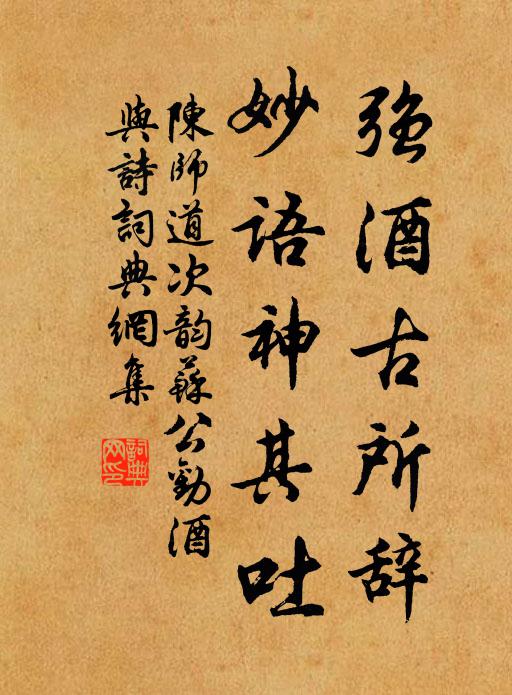 强酒古所辞
妙语神其吐
陳師道次韵蘇公勸酒
與詩詞典網集
詞典網印